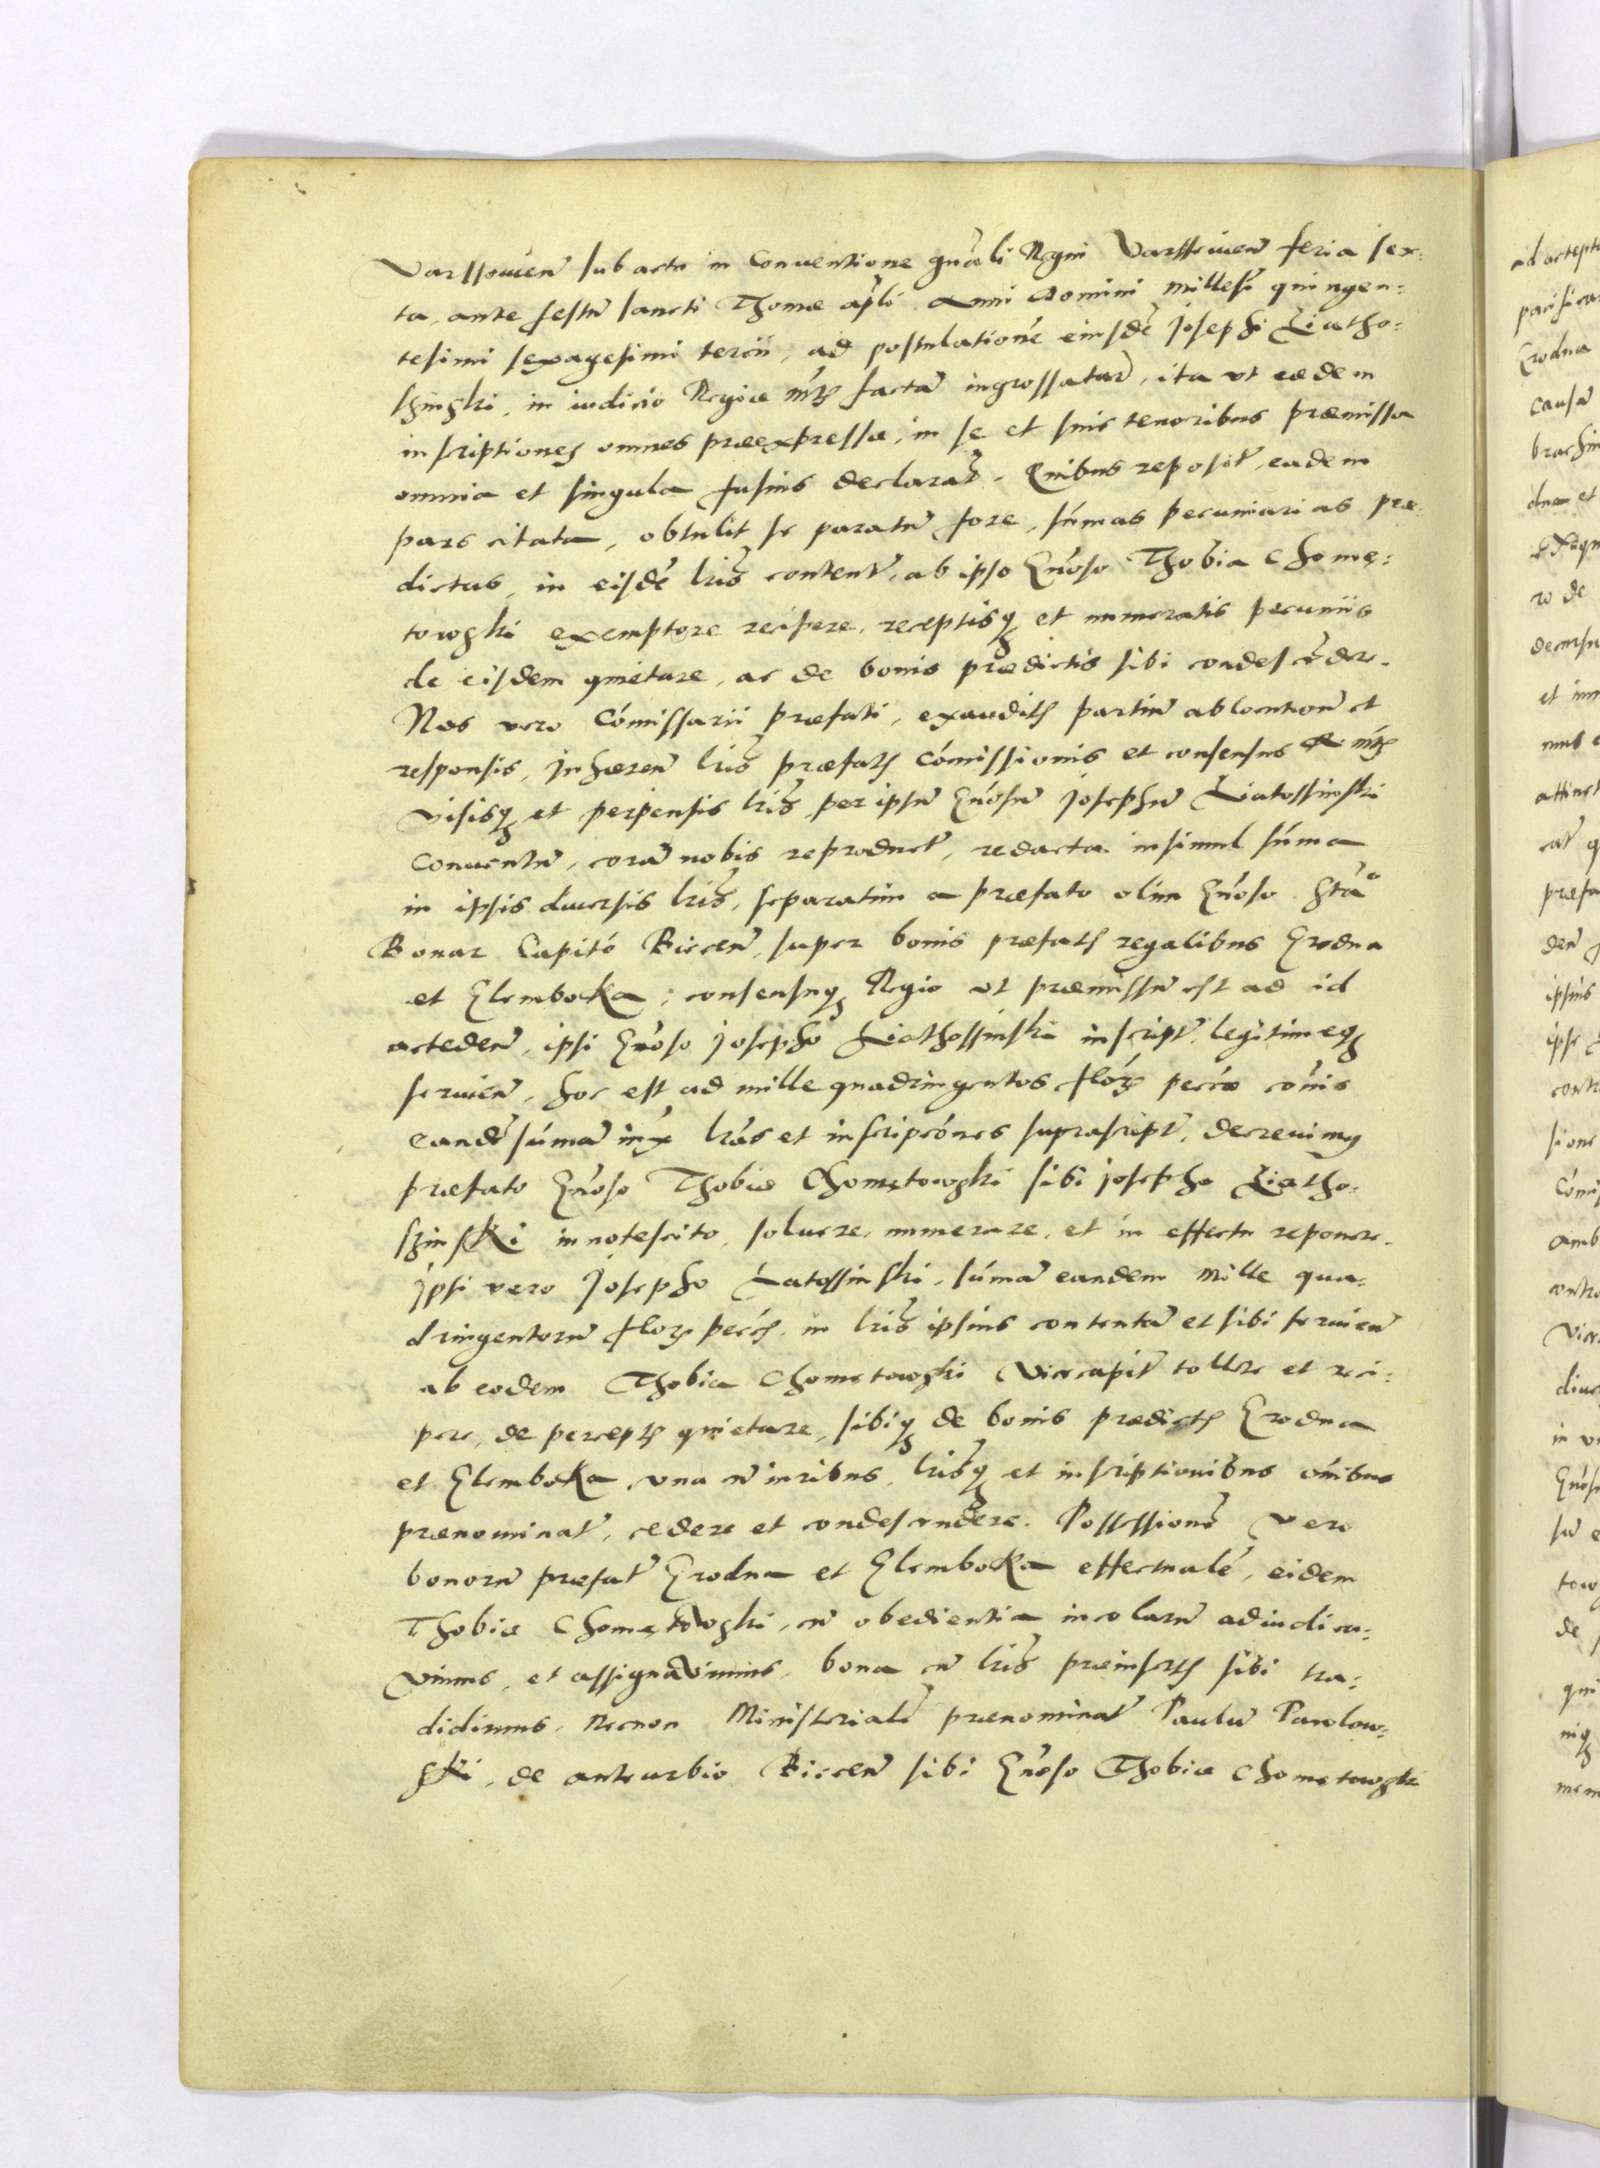 Varssowien̄ sub actu in Conventione gnāli Regni Varssevien̄ feria sex:
ta, ante festū sancti Thomæ apl̄i Anni Domini millesī quingen:
tesimi sexagesimi tercii, ad postulationē eiusdē Josephi Liatho:
ss̄inski, in iudicio Regiæ mtis factā ingrossatā, ita ut eædem
inscriptiones omnes præexpressæ, in se et suis tenoribus præmissa
omnia et singula fusius declarāt. Quibus reposit̄, eadem
pars citata, obtulit se paratū fore, sūmas pecuniarias præ
dictas, in eisdē lr̄is content̄, ab ipso Gn̄oso Thobia Chomę:
towski exemptore recipere, receptisq; et numeratis pecuniis
de eisdem quietare, ac de bonis prædictis sibi condescēdere.
Nos vero Cōmissarii præfati, exauditis partiū ablocution̄ et
responsis, Inhæren̄ lr̄is præfatis Cōmissionis et consensus R mtis
visisq; et perpensis lr̄is per ipsū Gn̄osū Josephū Liatossinski
Conventū, corā nobis reproduct̄, redacta insimul sūma
in ipsis diversis lr̄is, separatim a præfato olim Gn̄oso Stā°
Bonar Capitō Biecen̄, super bonis præfatis regalibus Grodna
et Glemboka; consensuq; Regio ut præmissū est ad id
acceden̄, ipsi Gn̄oso Josepho Liathossinski inscript̄, legitimeq;
servien̄, hoc est ad mille quadringentos flor̄ pec̄æ cōnis
eandē sūmā iux̄ lr̄as et inscripcōnes suprascript̄, decrevimq
præfato Gn̄oso Thobiæ Chomętowski sibi Josepho Liatho:
szinski innotescito, solvere, numerare, et in effectu reponere.
Ipsi vero Josepho Latossinski, sūmā eandem mille qua:
dringentorū flor̄ pec̄, in lr̄is ipsius contentā et sibi servien̄
ab eodem Thobia Chometowski Vicecapit̄ tollere et reci:
pere, de perceptis quietare, sibiq; de bonis prædictis Grodna
et Glemboka, una cū iuribus, lr̄isq; et inscriptionibus ōnibus
prænominat̄, cedere et condescendere. Possessionē vero
bonorū præfat̄ Grodna et Glemboka effectualē, eidem
Thobiæ Chomętowski, cū obedientia incolarū adiudica:
vimus, et assignavimus, bona cū lr̄is præinsertis sibi tra:
didimus, Necnon Ministerialē prænominat̄ Paulū Pawlow:
ski, de antiurbio Biecen̄ sibi Gn̄oso Thobiæ Chometowski